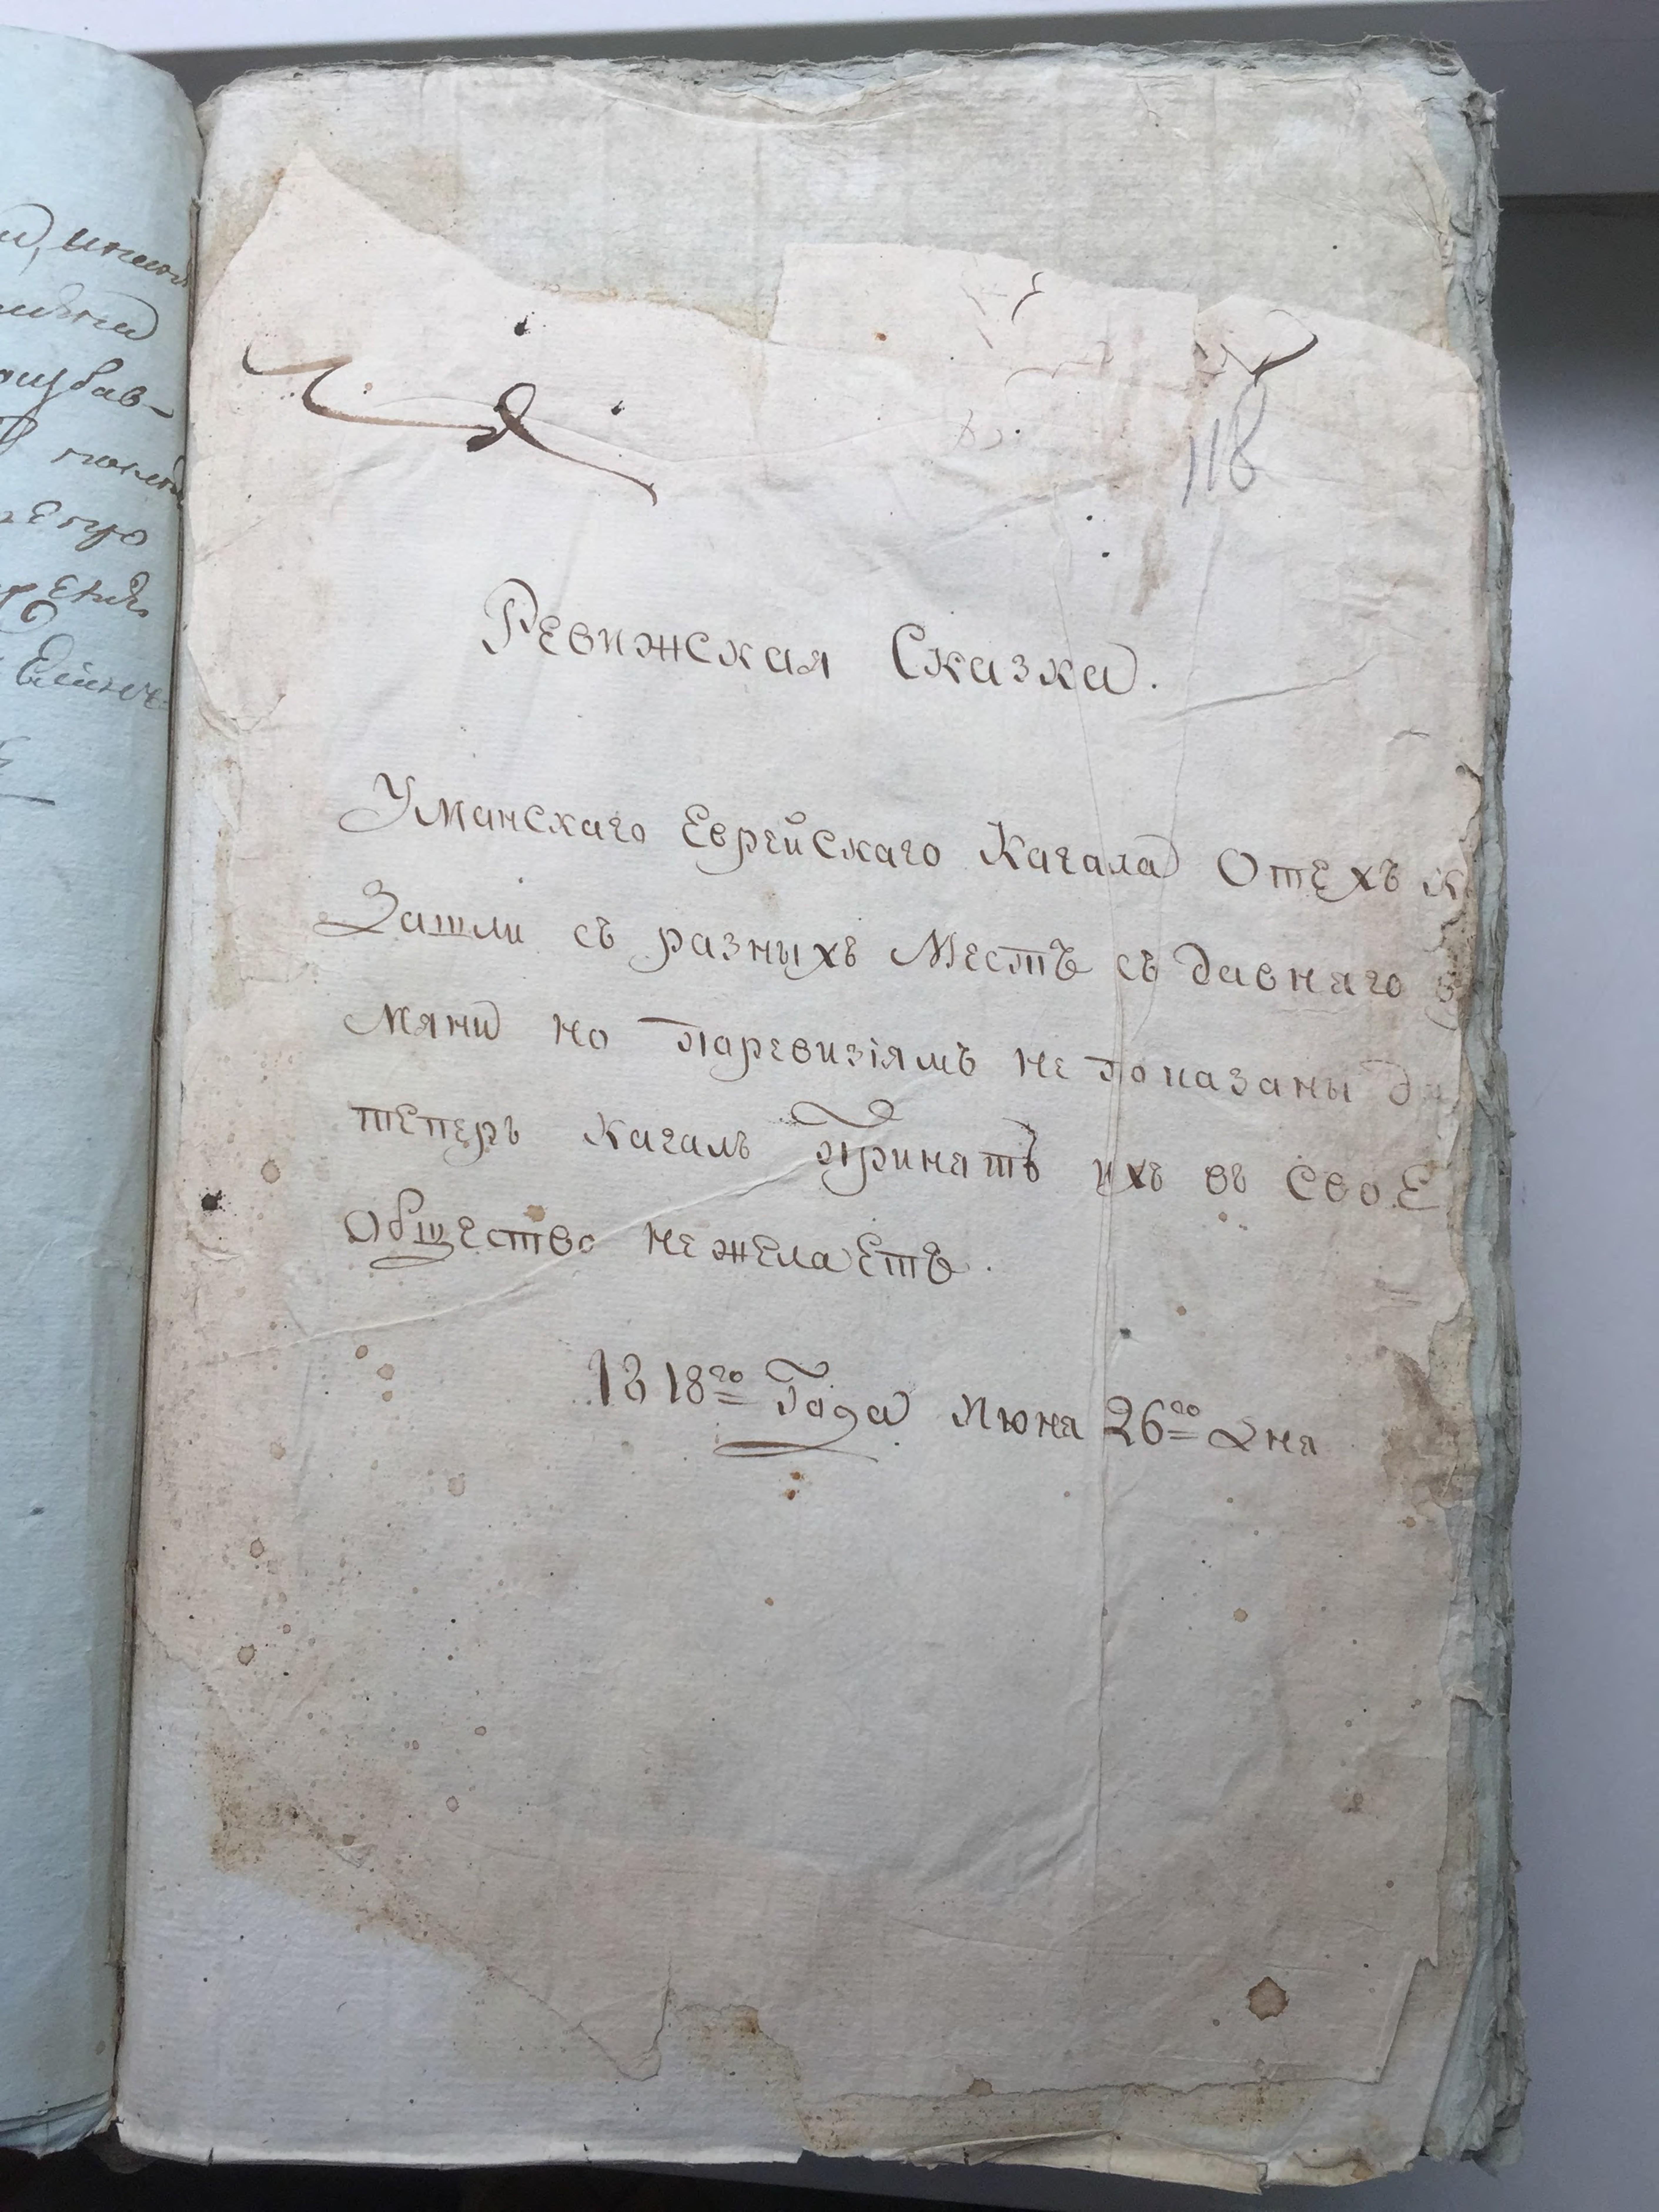 118
Ревижская Сказка.
Уманскаго Еврейскаго Кагала Отехъ
Зашли съ разныхъ Местъ съ давнаго
мяни но поревизіямъ не показаны
теперь Кагалъ Принятъ ихъ въ свое
Общество нежелаетъ.
1818го Года Июня 26го Дня